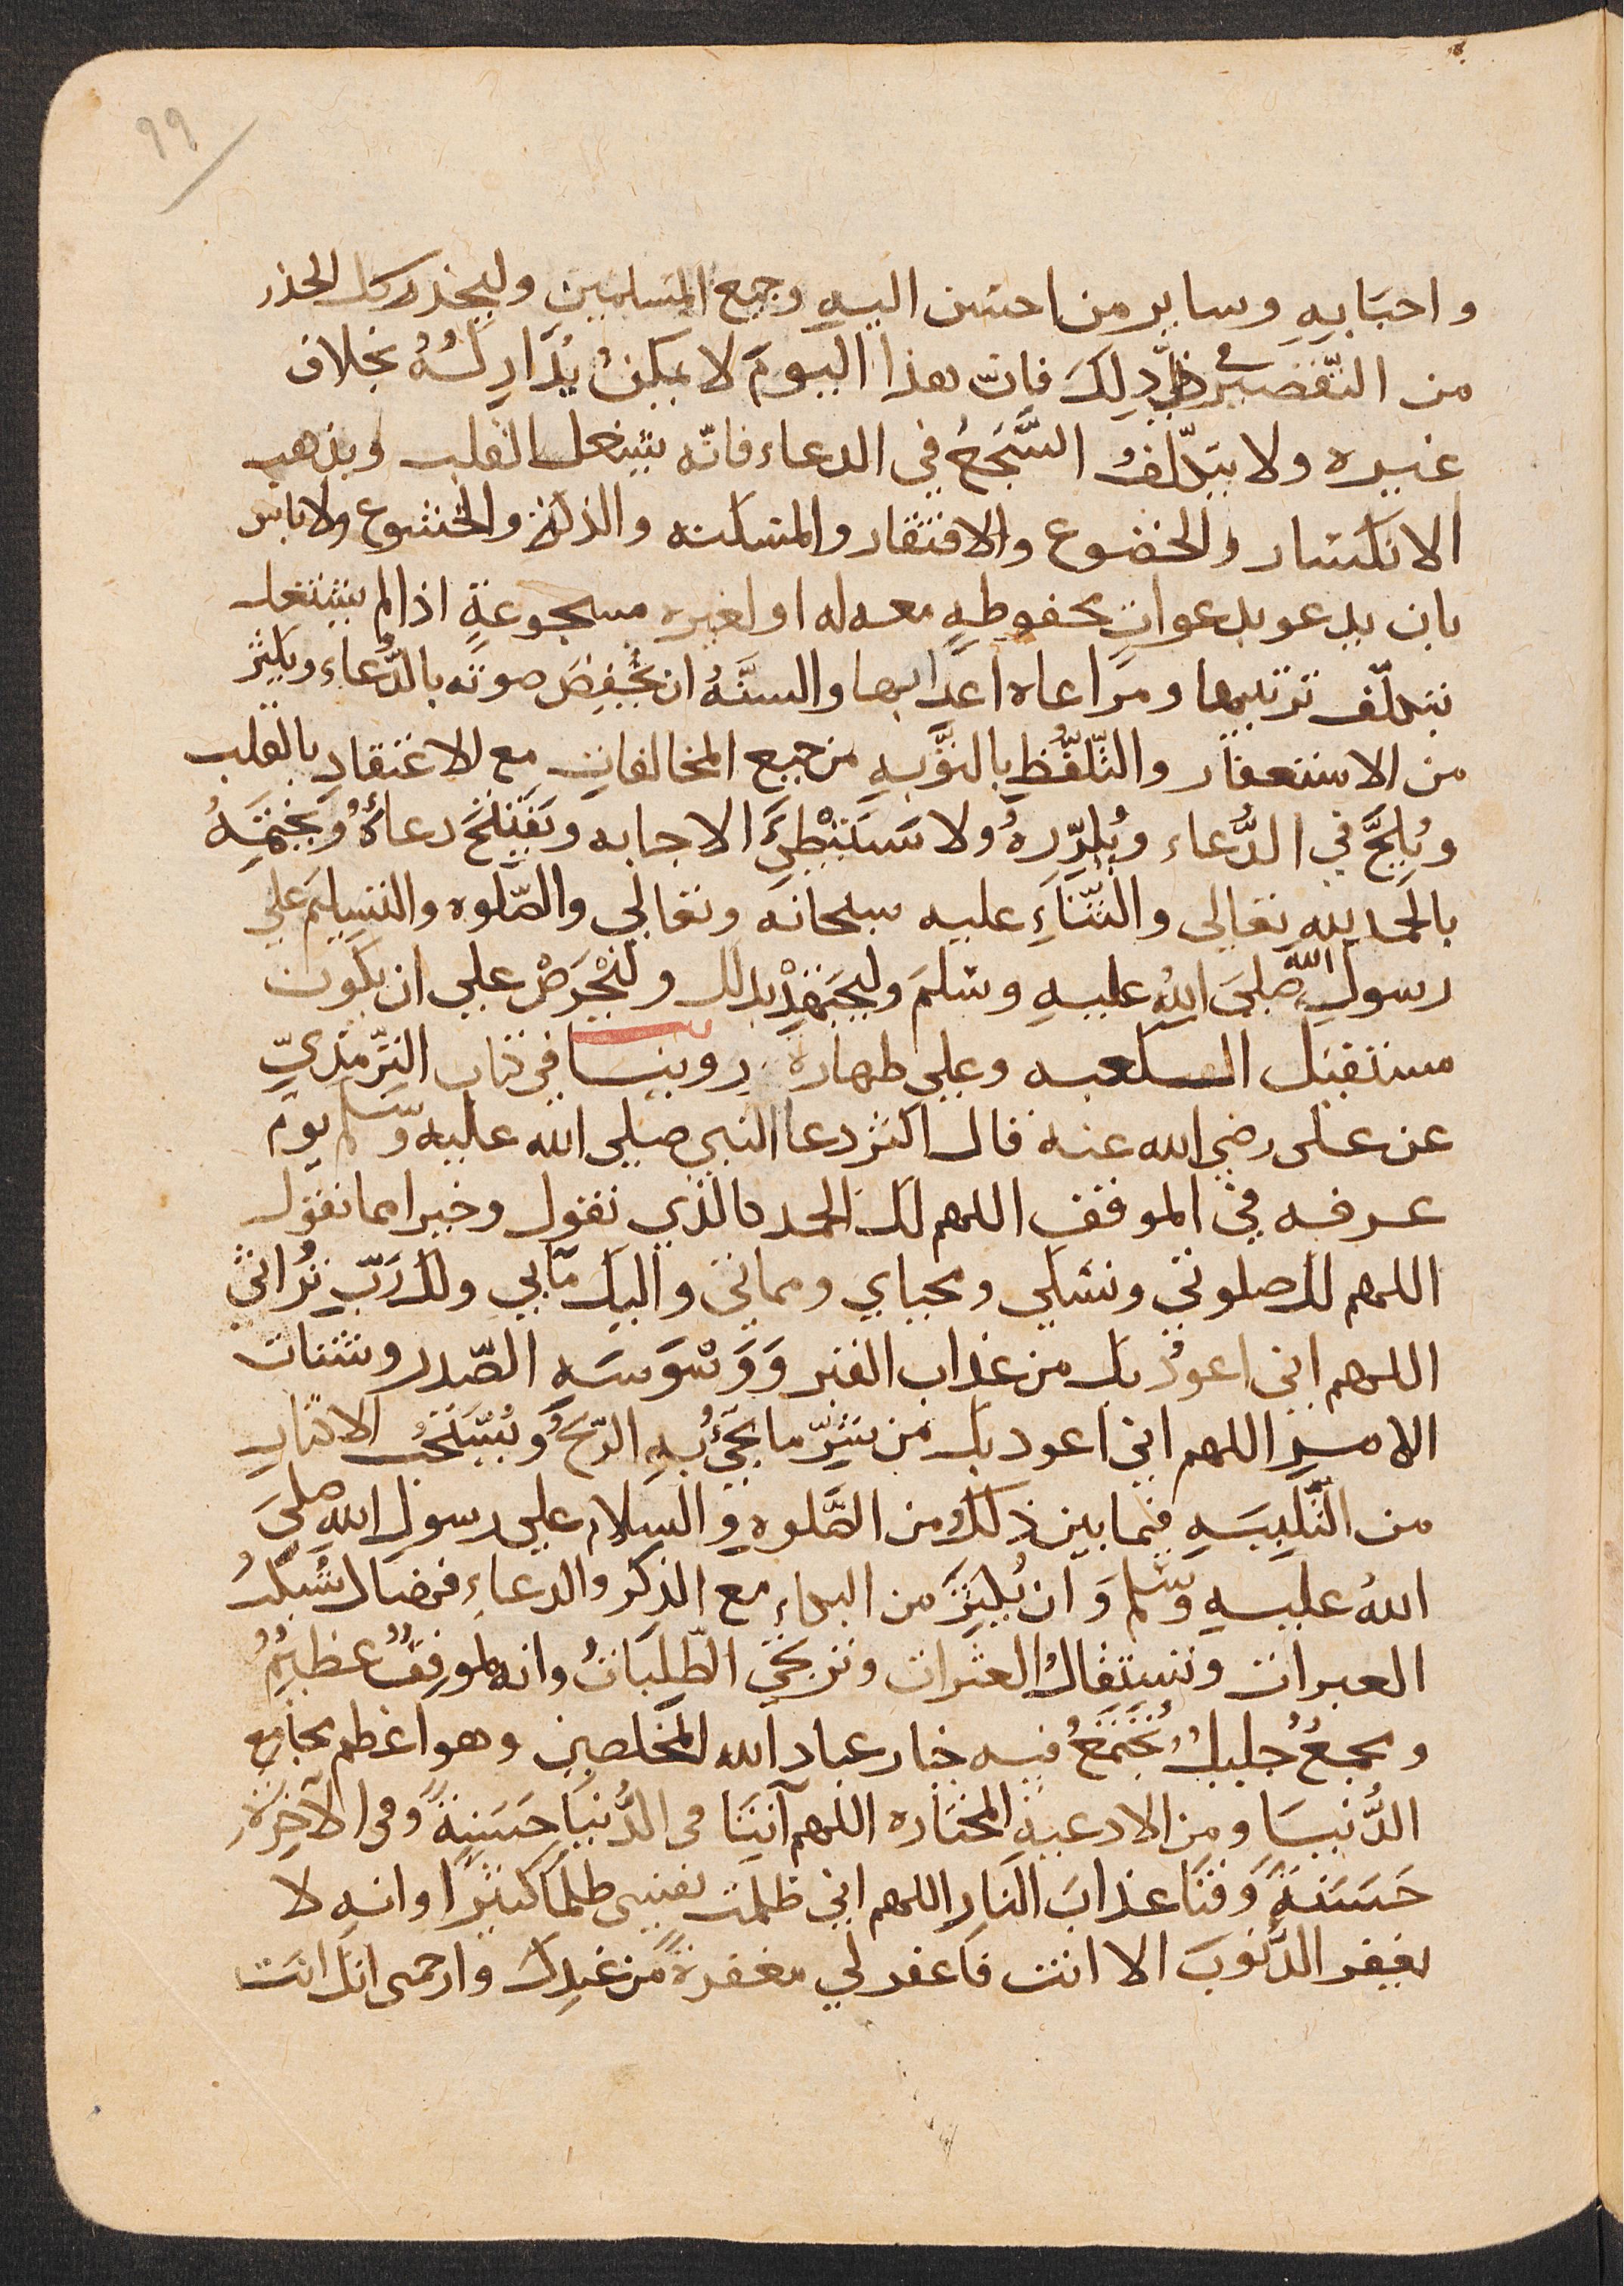 ٩٩
واحبابه وساير من احسن اليه وجميع المسلمين وليحذر كل الحذر
من التّقصير في ذلك فانّ هذا اليوم لا يمكن تداركه بخلاف
غيره ولا يتكلّف السّجع في الدعاء فانّه يشغل القلب ويذهب
الانكسار والخضوع والافتقار والمسكنه والذلة والخشوع ولا باس
بان يدعو بدعوات محفوظة معه له او لغيره مسجوعة اذا لم يشتغل
بتكلّف ترتيبها ومراعاه اعرابها والسنّة ان يخفض صوته بالدّعاء ويكثر
من الاستغفار والتّلفّظ بالتّوبه من جميع المخالفات مع الاعتقاد بالقلب
ويُلحّ في الدّعاء ويُكرّره ولا يستبطئ الاجابه ويفتتح دعاءه ويختمه
بالحمد لله تعالى والثّناء عليه سبحانه وتعالي والصّلوه والتسليم علي
رسول الله صلي الله عليه وسلم وليجتهد بذلك وليحرص علي ان يكون
مستقبل الكعبه وعلي طهارة روينا في كتاب الترمذيّ
عن على رضي الله عنه قال اكثر دعا النبي صلي الله عليه وسلم يوم
عرفه في الموقف اللهم لك الحمد كالذي نقول وخيرا مما نقول
اللهم لك صلوتي ونسكي ومحياي ومماتي واليك مآبي ولك ربّ تُراثي
اللهم اني اعوذ بك من عذاب القبر وَوَسْوَسَه الصّدر وشتات
الامر اللهم اني اعوذ بك من شرّ ما تجيُ به الريح ويُستحبُ الاكثار
من التّلبيه فيما بين ذلك ومن الصّلوه والسلام علي رسول الله صلي
الله عليه وسلم وَان يُكثر من البكاء مع الذكر والدعاء فهناك تسكبُ
العبرات وتستقالُ العثرات وترتجي الطّلباتُ وانه لموقفٌ عظيمٌ
ومجمعٌ جليلٌ يجتمعُ فيه خيار عباد الله المخلصين وهو اعظم مجامع
الدُّنيا ومن الادعية المختاره اللهم آتنا في الدُّنيا حَسنةً وفي الآخرة
حَسنةً وَقنا عذابَ النار اللهم اني ظلمت نفسي ظلماً كثيرا وانه لا
يغفر الذنوبَ الا انت فاغفر لي مغفرةً من عندك وارحمني انك انت